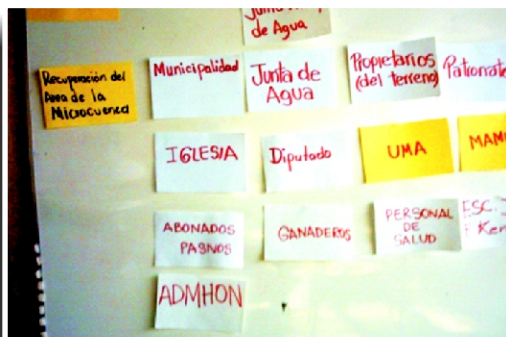 de Agua
Recuperación del
Area de la
Microcuenca
Municipalidad
Junta de
Agua
Propietarios
(del terreno)
Patronato
IGLESIA
Diputado
UMA
ABONADOS
GANADEROS
PERSONAL
DE
SALUD
ESC.
ADMHON